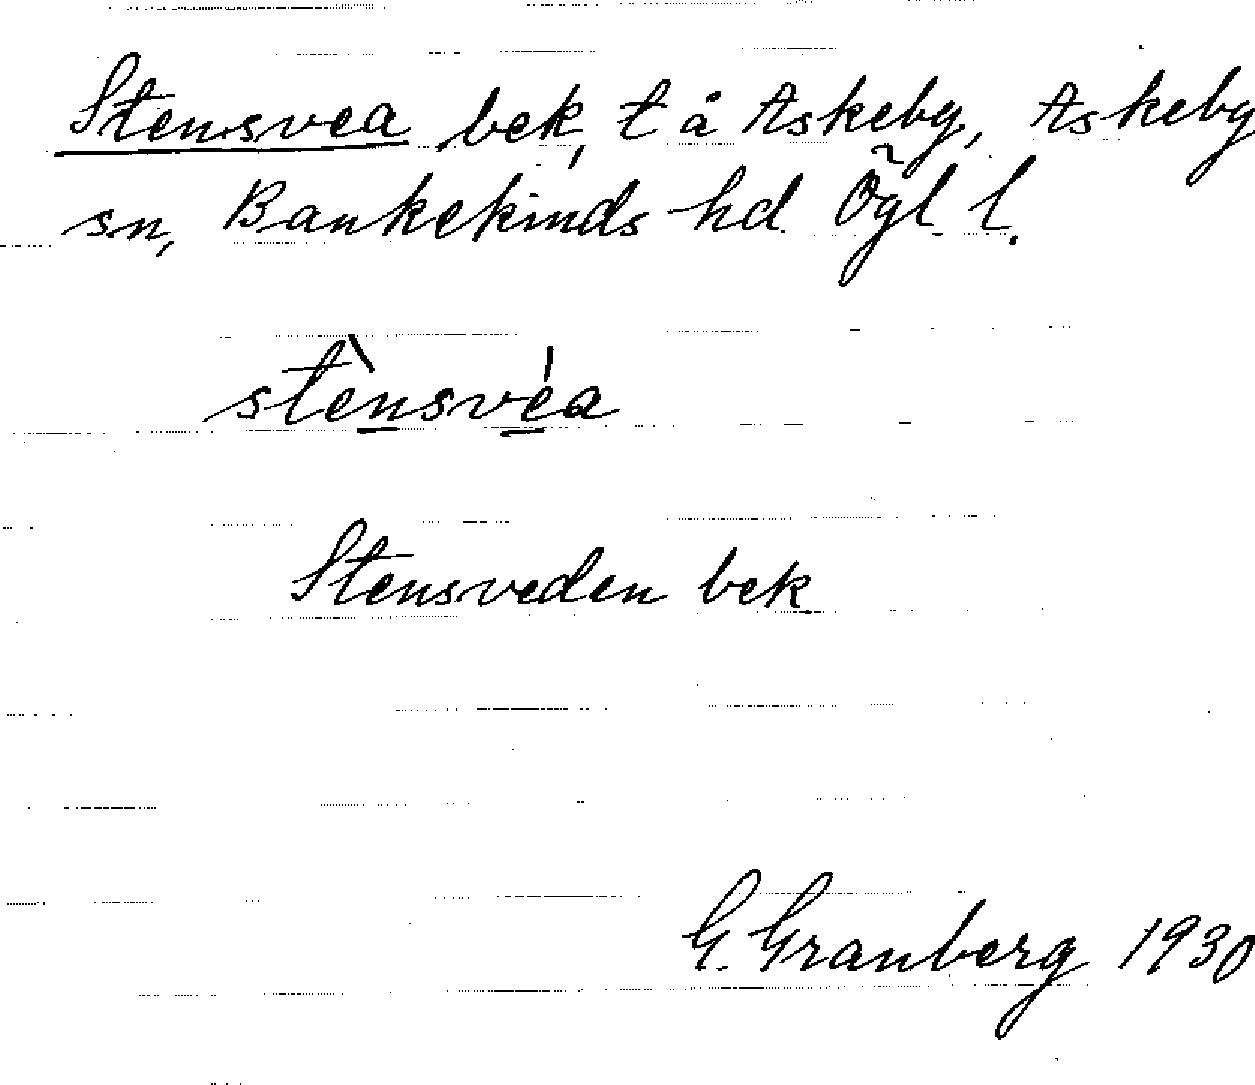 Stensvea bek, t å Askeby, Askeby
sn, Bankekinds hd Ögl l.
stènsvéa
Stensveden bek
G. Granberg 1930